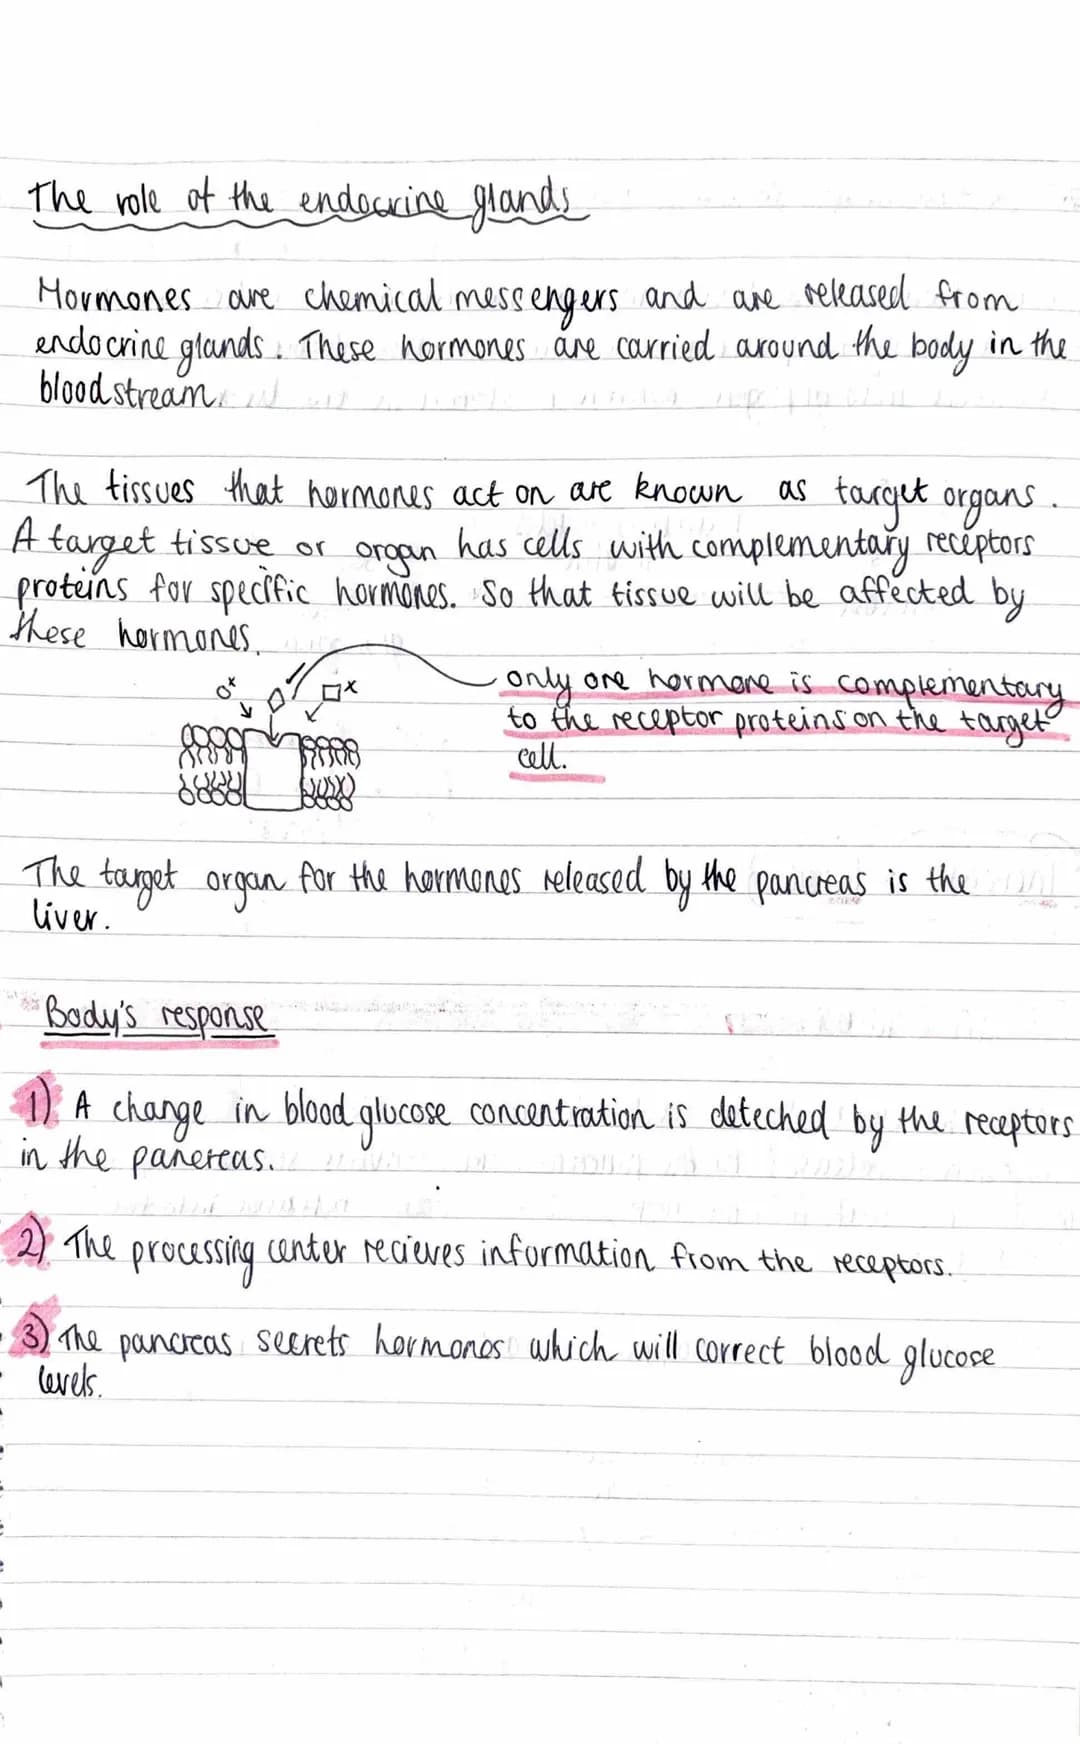 The role of the endocrine glands
Hormones are chemical messengers and are released from
endocrine glands. These hormones are carried around the body in the
bloodstream.
The tissues that hormones act on are known as target organs.
A target tissue or organ has cells with complementary receptors
proteins for specific hormones. So that tissue will be affected by
these hormones.
x x
only one hormone is complementary
to the receptor proteins on the target
cell.
The target organ for the hormones released by the pancreas is the
liver.
Body's response
1) A change in blood glucose concentration is deteched by the receptors
in the panereas.
2) The processing center recieves information from the receptors.
3) The pancreas secrets hormones which will correct blood glucose
levels.